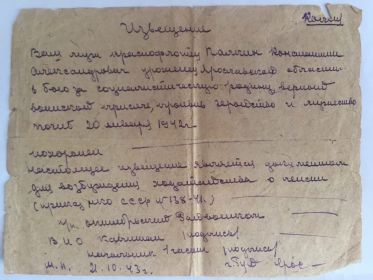 Копия
Извещение
Ваш муж краснофлотец Калгин Константин
Александрович уроженец Ярославской области
в бою за социалистическую родину, верный
воинской присяге, проявив геройство и мужество
погиб 20 января 1942г.
похоронен
настоящее извещение является документом
для возбуждения ходатайства о пенсии
(приказ нко СССР № 138-41.)
п/п
ВИО подпись
начальник части подпись
м.п. 21.10.43г.